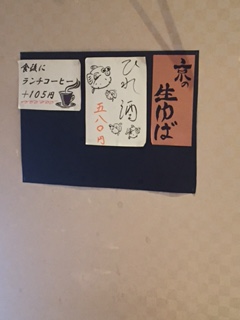 京の
生ゆば
ひれ酒
五八〇円
食後に
ランチコーヒー
+105円